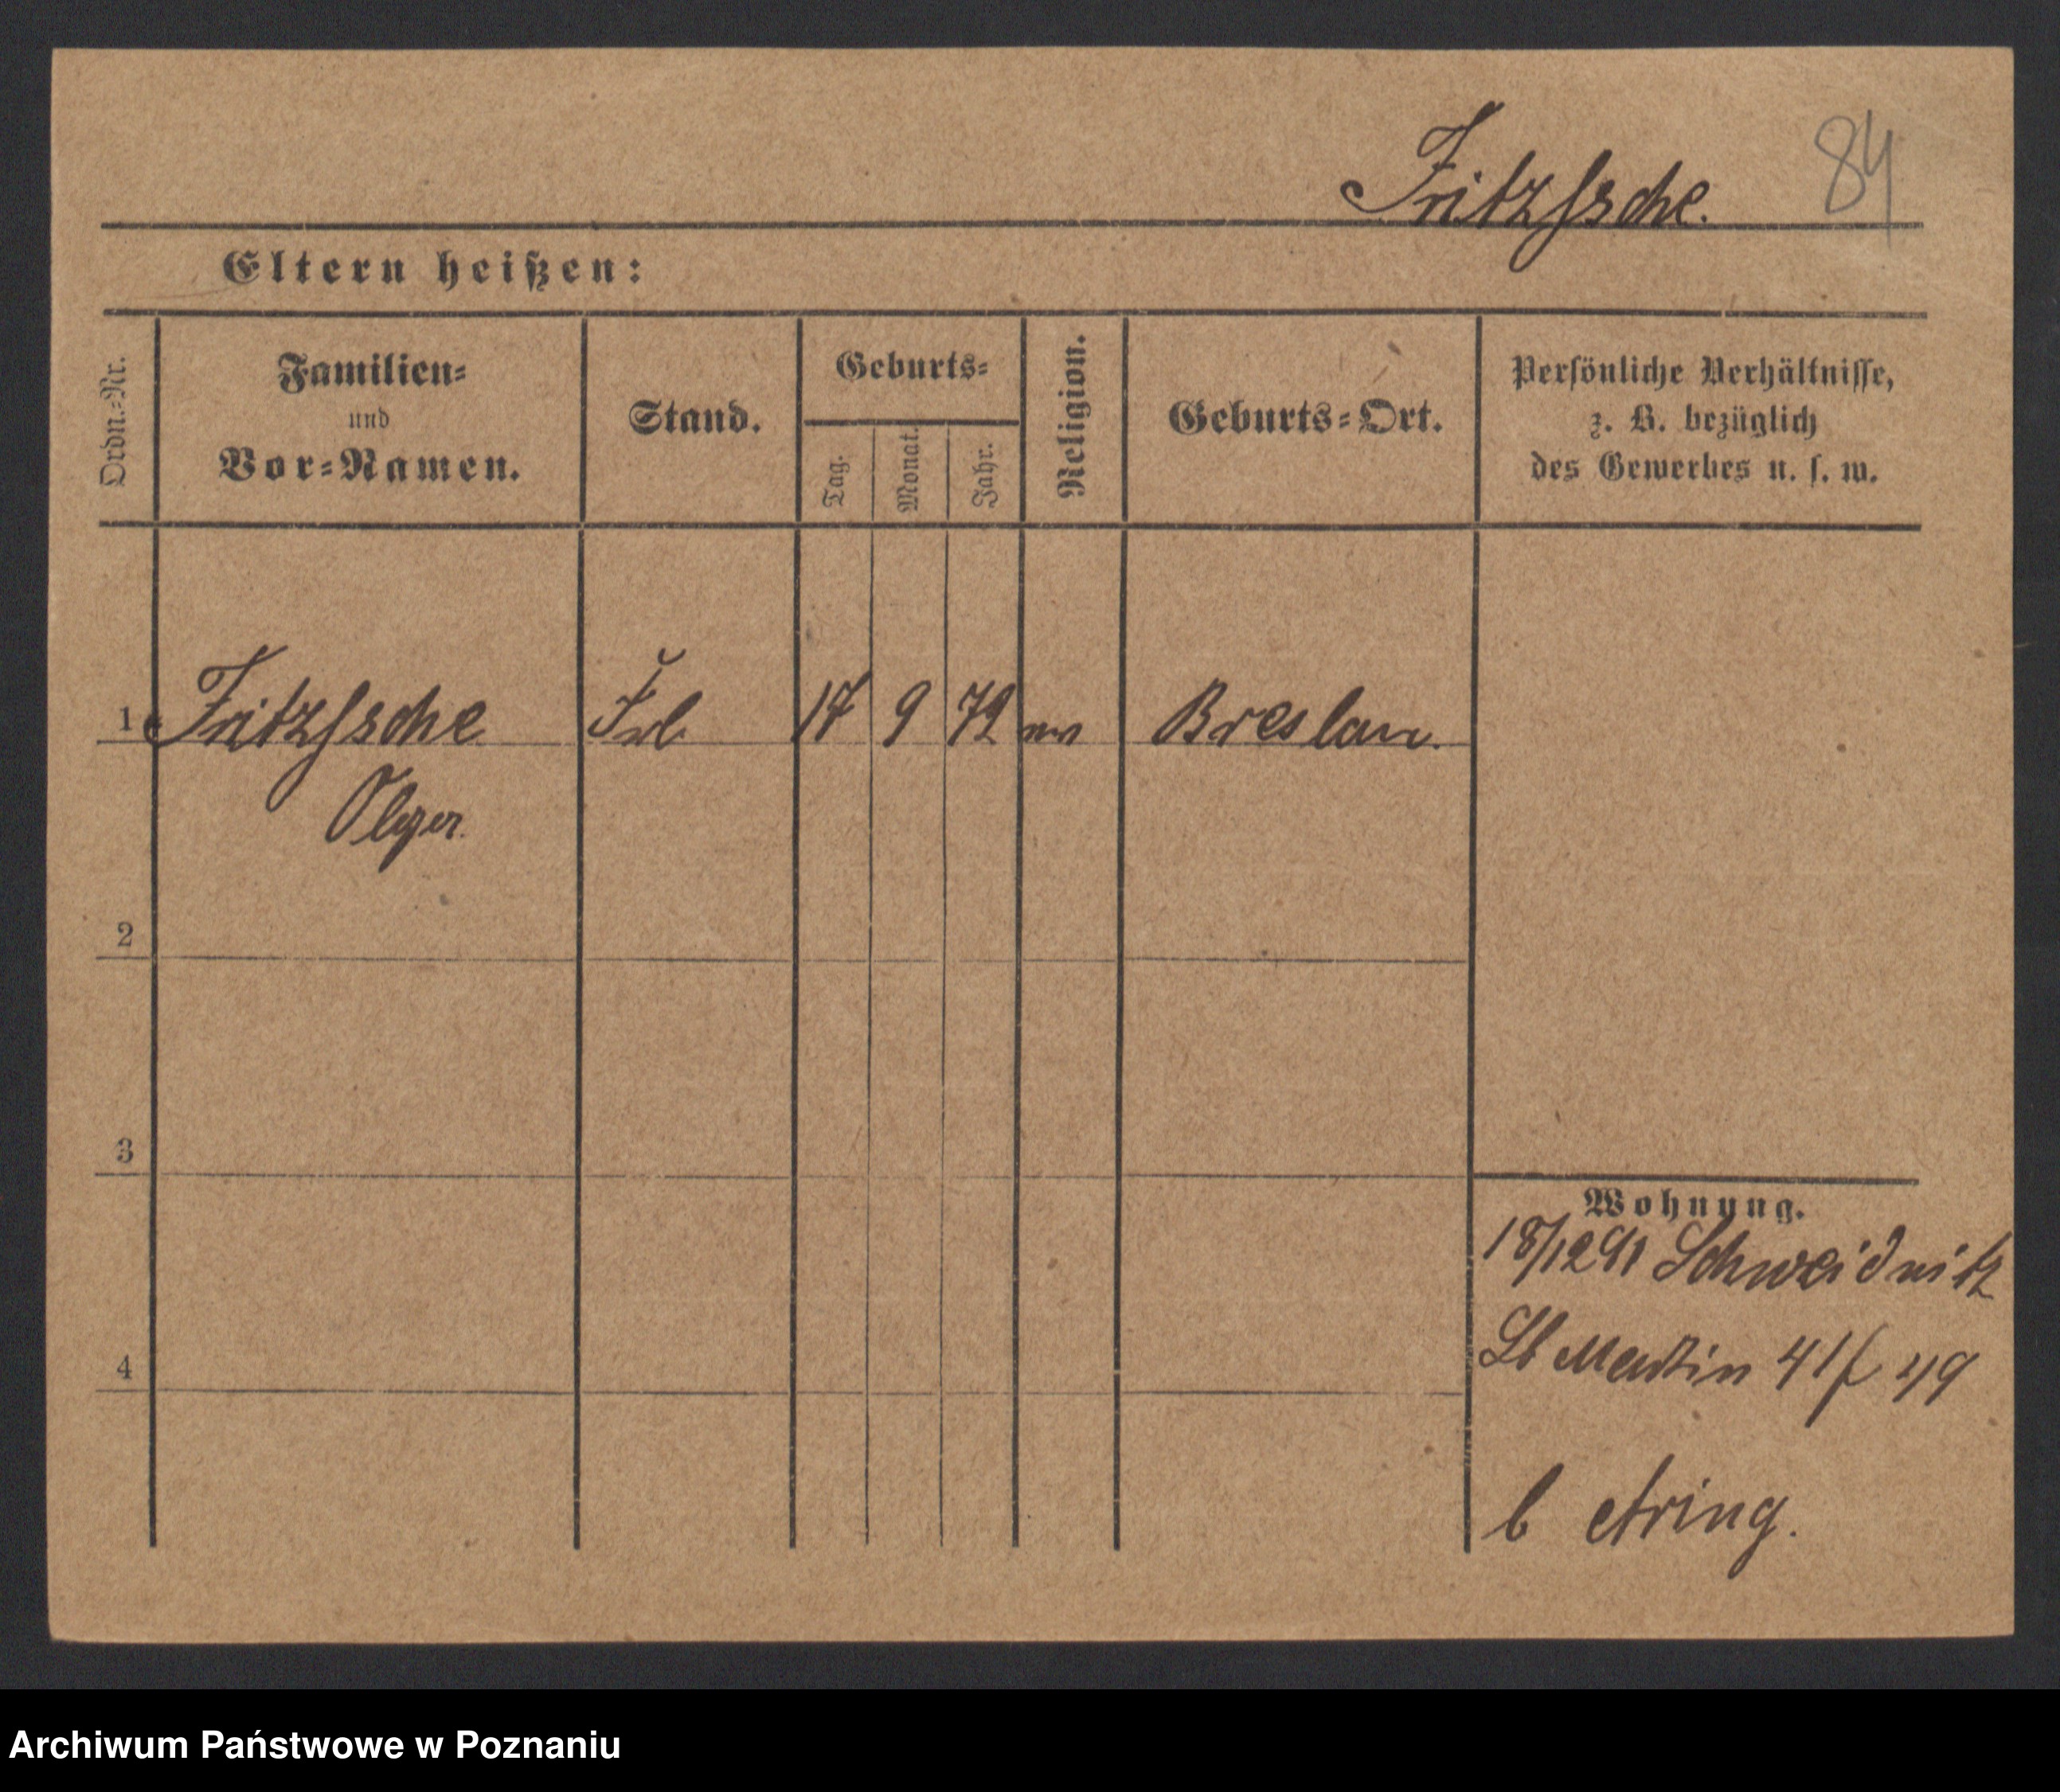 Fritzsche. 84
Eltern heißen:
Ordn.-Nr.
Familien-
und
Vor-Namen.
Stand.
Geburts-
Tag.
Monat.
Jahr.
Religion.
Geburts-Ort.
Persönliche Verhältnisse,
z. B. bezüglich
des Gewerbes u. s. w.
1 Fritzsche Frl 17 9 72 ev Breslau.
Olga.
2
3
4
Wohnung.
18/12 91 Schweidnitz
St Martin 41
b Aring.
Archiwum Państwowe w Poznaniu